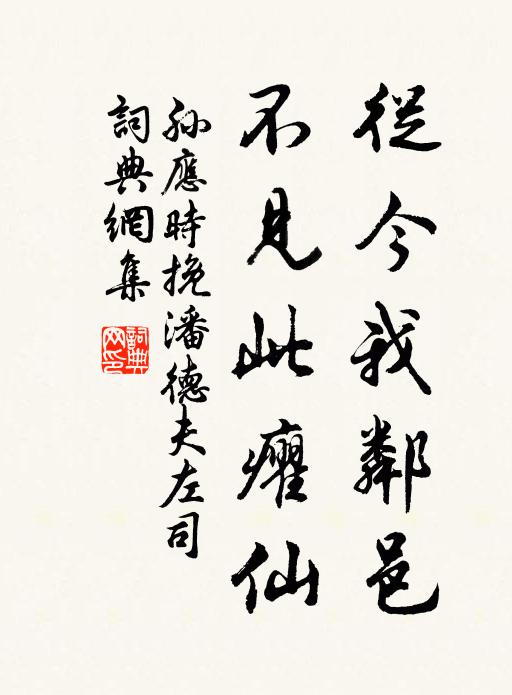 從今我鄰邑
不見此癯仙
孫應時挽潘德夫左司
詞典網集
詞典網印